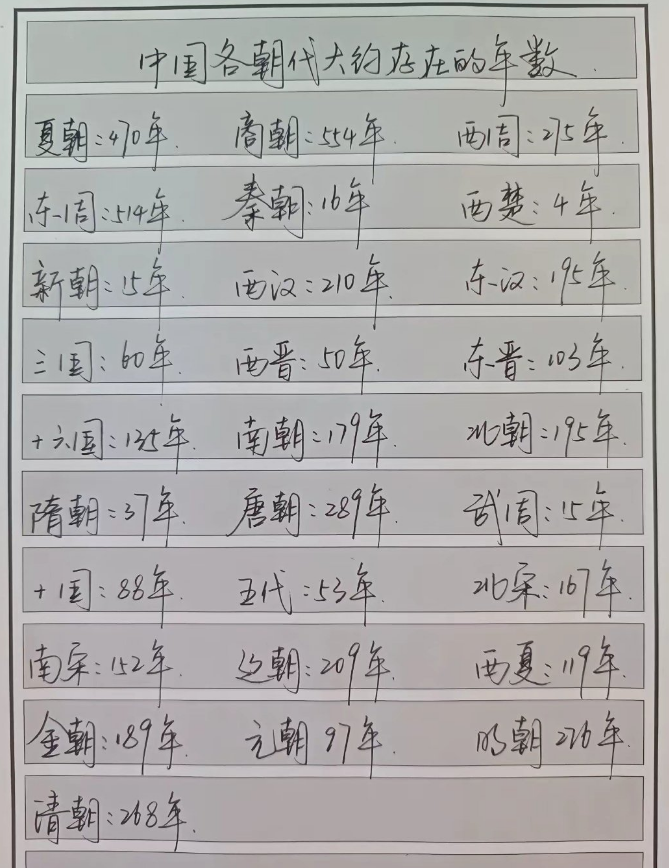 中国各朝代大约存在的年数.
夏朝:470年. 商朝:554年. 西周:275年.
东周:514年. 秦朝:16年 西楚:4年.
新朝:15年. 西汉:210年. 东汉:195年.
三国:60年. 西晋:50年. 东晋:103年.
十六国:135年. 南朝:179年. 北朝:195年.
隋朝:37年. 唐朝:289年. 武周:15年.
十国:88年. 五代:53年. 北宋:167年.
南宋:152年. 辽朝:209年. 西夏:119年.
金朝:189年. 元朝 97年. 明朝 276年.
清朝:268年.